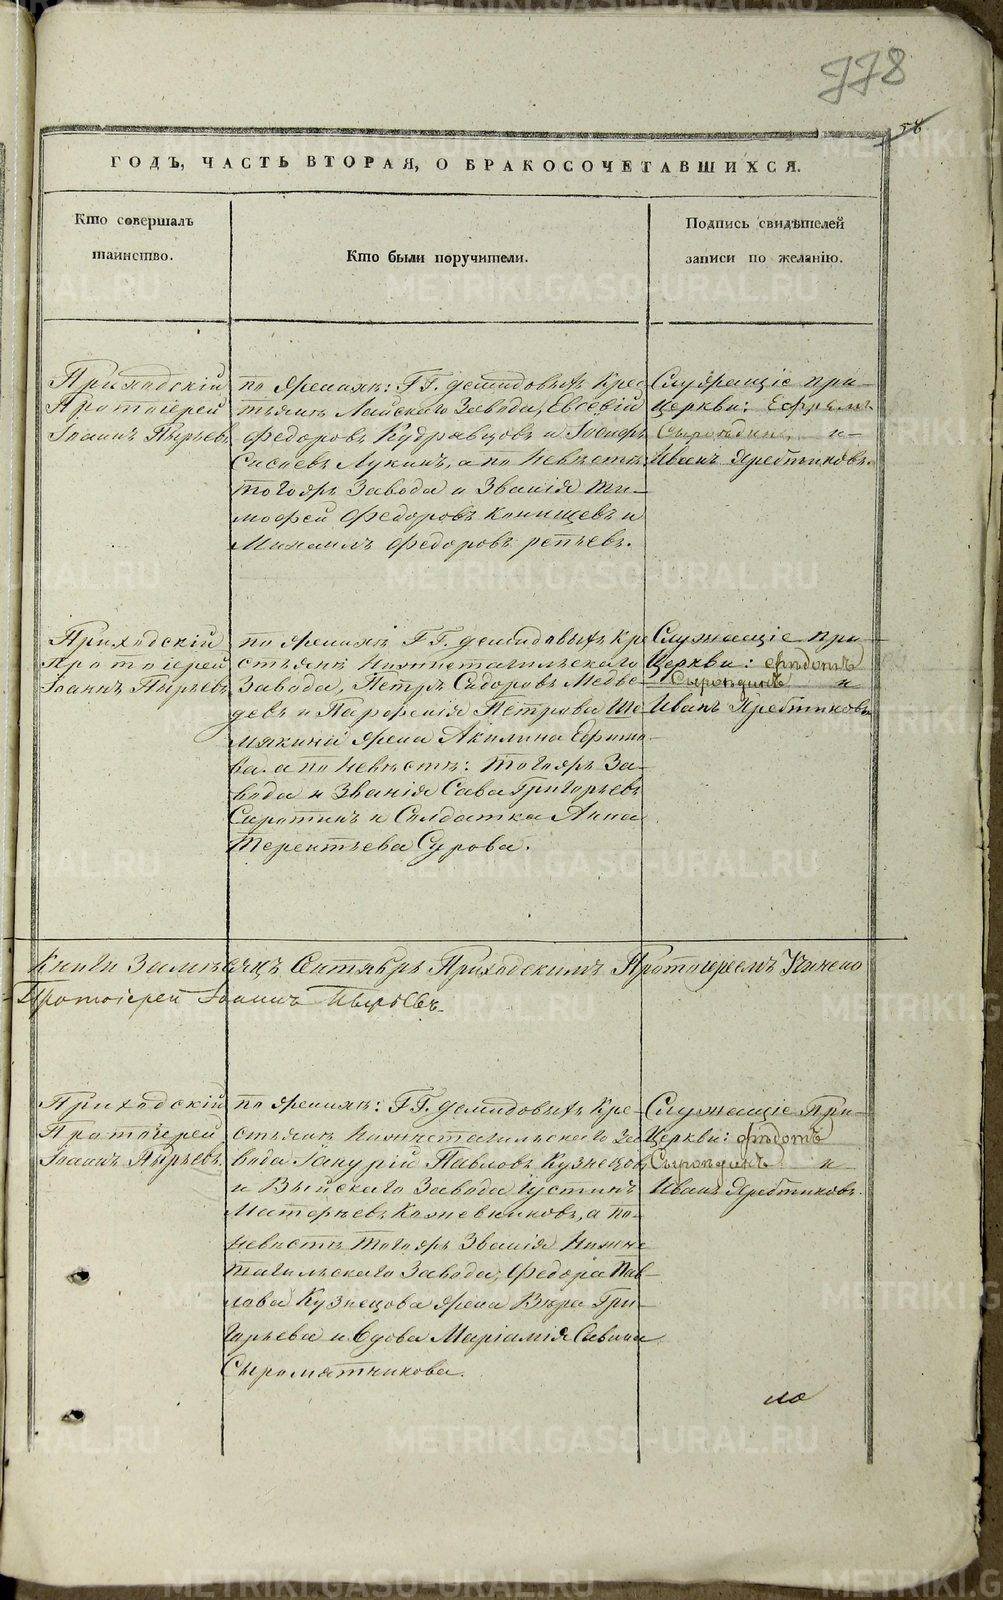 778
58
ГОДЪ, ЧАСТЬ ВТОРАЯ, О БРАКОСОЧЕТАВШИХСЯ.
Кто совершалъ
таинство.
Кто были поручители.
Подпись свидѣтелей
записи по желанію.
Приходскій
Протоіерей
Іоаннъ Пырьевъ
по женихѣ: Г.Г. Демидовыхъ Крес
тьянѣ Лайскаго Завода, Евсевій
Федоровъ Кудрявцовъ и Іосифъ
Сысоевъ Лукинъ, а по Невѣстѣ
тогожъ Завода и Званія Ти-
мофей Федоровъ Конищевъ и
Михаилъ Федоровъ репьевъ.
Служащіе при
церкви: Ефремъ
и
Иванъ Хребтиковъ.
Приходскій
Протоіерей
Іоаннъ Пырьевъ
по женихѣ Г.Г. Демидовыхъ Кре
стьянѣ Нижнетагильскаго
Завода, Петръ Сидоровъ Медве
девъ и Парфенія Петрова Ше
мякина жена Акилина Ефимо-
ва. а по невѣстѣ: тогожъ За-
вода и Званія Сава Григорьевъ
Сиротинъ и Солдатка Анна
Терентьева Сурова.
Служащіе при
Церкви: Федотъ
и
Иванъ Хребтиковъ
Книги За мѣсяцъ Сентябрь Приходскимъ Протоіереемъ
Протоіерей Іоаннъ Пырьевъ.
Приходскій
Протоіерей
Іоаннъ Пырьевъ.
по женихѣ: Г.Г. Демидовыхъ Кре-
стьянѣ Нижнетагильскаго За
вода Павловъ Кузнецов
и Выйскаго Завода Іустинъ
Матфеевъ Кожевниковъ, а по
невѣстѣ тогожъ Званія Нижне
тагильскаго Завода; Федора Пав-
лова Кузнецова жена Вѣра Гри-
горьева и вдова Маріамія Савина
Сыромятникова.
Служащіе При-
Церкви: Федотъ
и
Иванъ Хребтиковъ.
но
METRIKI.GASO-URAL.RU